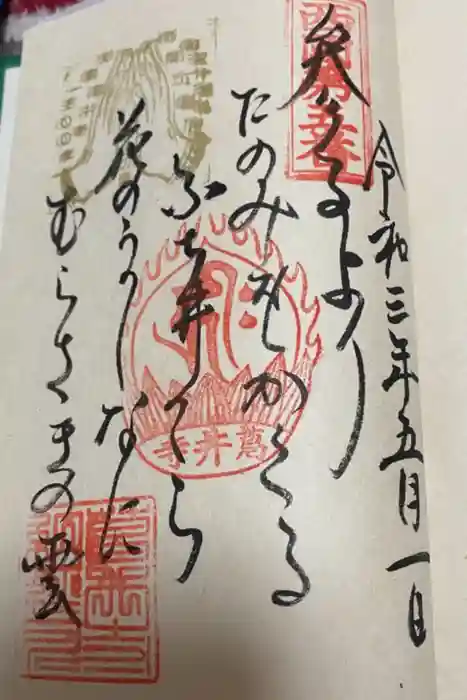 令和三年五月一日
西国第五番
参るより
たのみをかくる
ふぢ井てら
花のうてなに
むらさきの雲
葛井寺